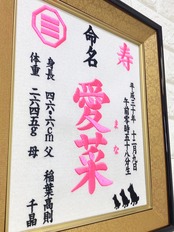 寿
平成三十年十二月九日
午前零時五十八分生
命名
愛菜
まな
身長 四六.六cm
体重 二六四五g
父 稲葉高則
母 千晶